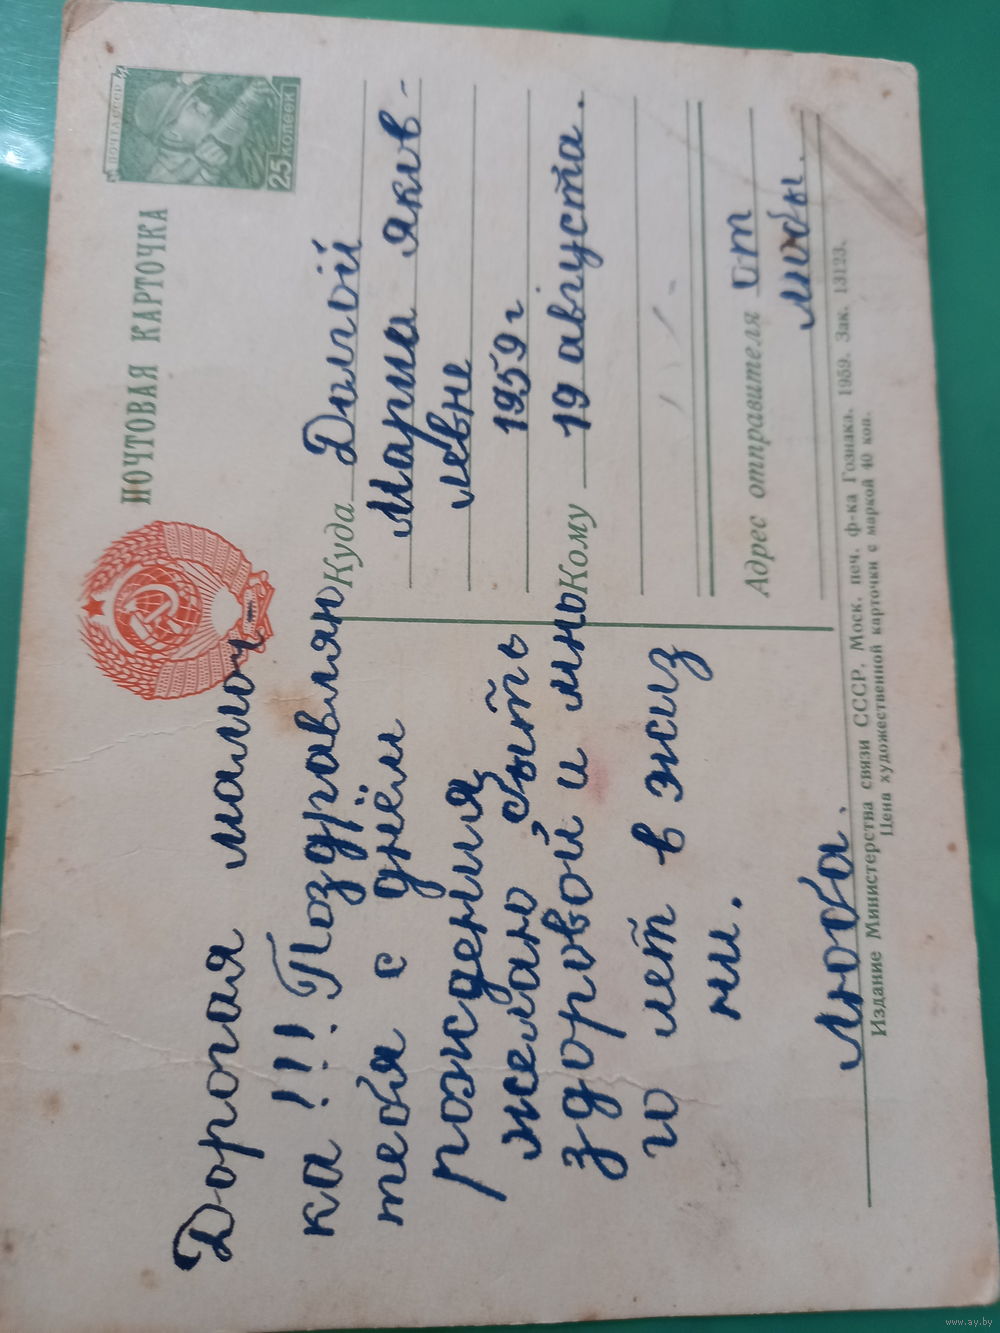 ПОЧТОВАЯ КАРТОЧКА
ПОЧТА СССР
25 КОПЕЕК
Дорогая мамоч-
ка!!! Поздравляю
тебя с днём
рождения
желаю быть
здоровой и мно
го лет в жиз
ни.
Люба.
Куда Долгой
Марии Яков-
левне
1959 г
Кому 19 августа.
Адрес отправителя от
Любы.
Издание Министерства связи СССР. Моск. печ. ф-ка Гознака. 1959. Зак. 13123.
Цена художественной карточки с маркой 40 коп.
www.ay.by